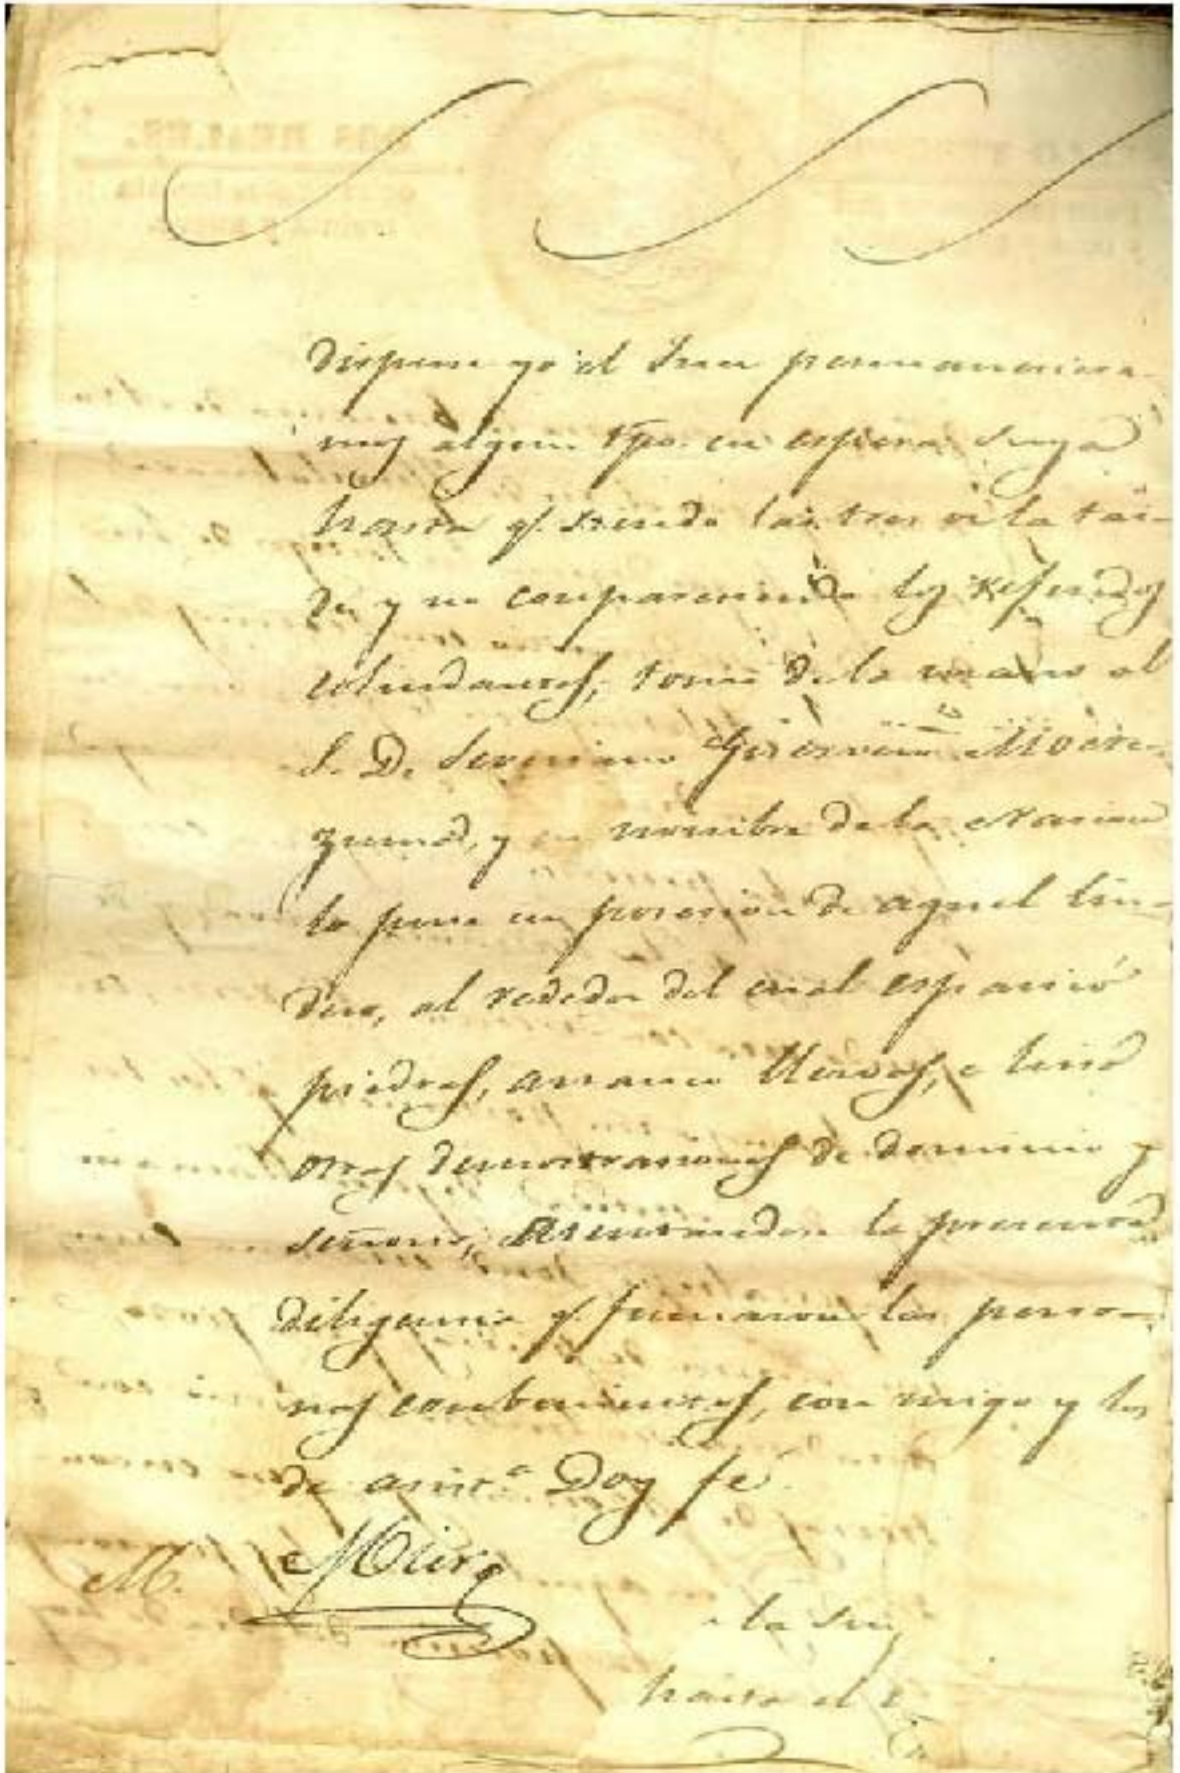 dispuse yo el Juez permaneciera-
mos algun tpo. en espera suya
hasta q. siendo las tres de la tar-
de y no compareciendo los referidos
colindantes, tomé de la mano al
S. D. Severiano
zuma, y en nombre de la Nacion
lo puse en posesion de aquel lin-
dero, al rededor del cual esparció
piedras, arrancó Yervas, e hizo
otras demostraciones de dominio y
señorio, asentandose la presente
diligencia q. firmaron las perso-
nas concurrentes, con migo y los
de asist.ª Doy fé.
M.
hasta el